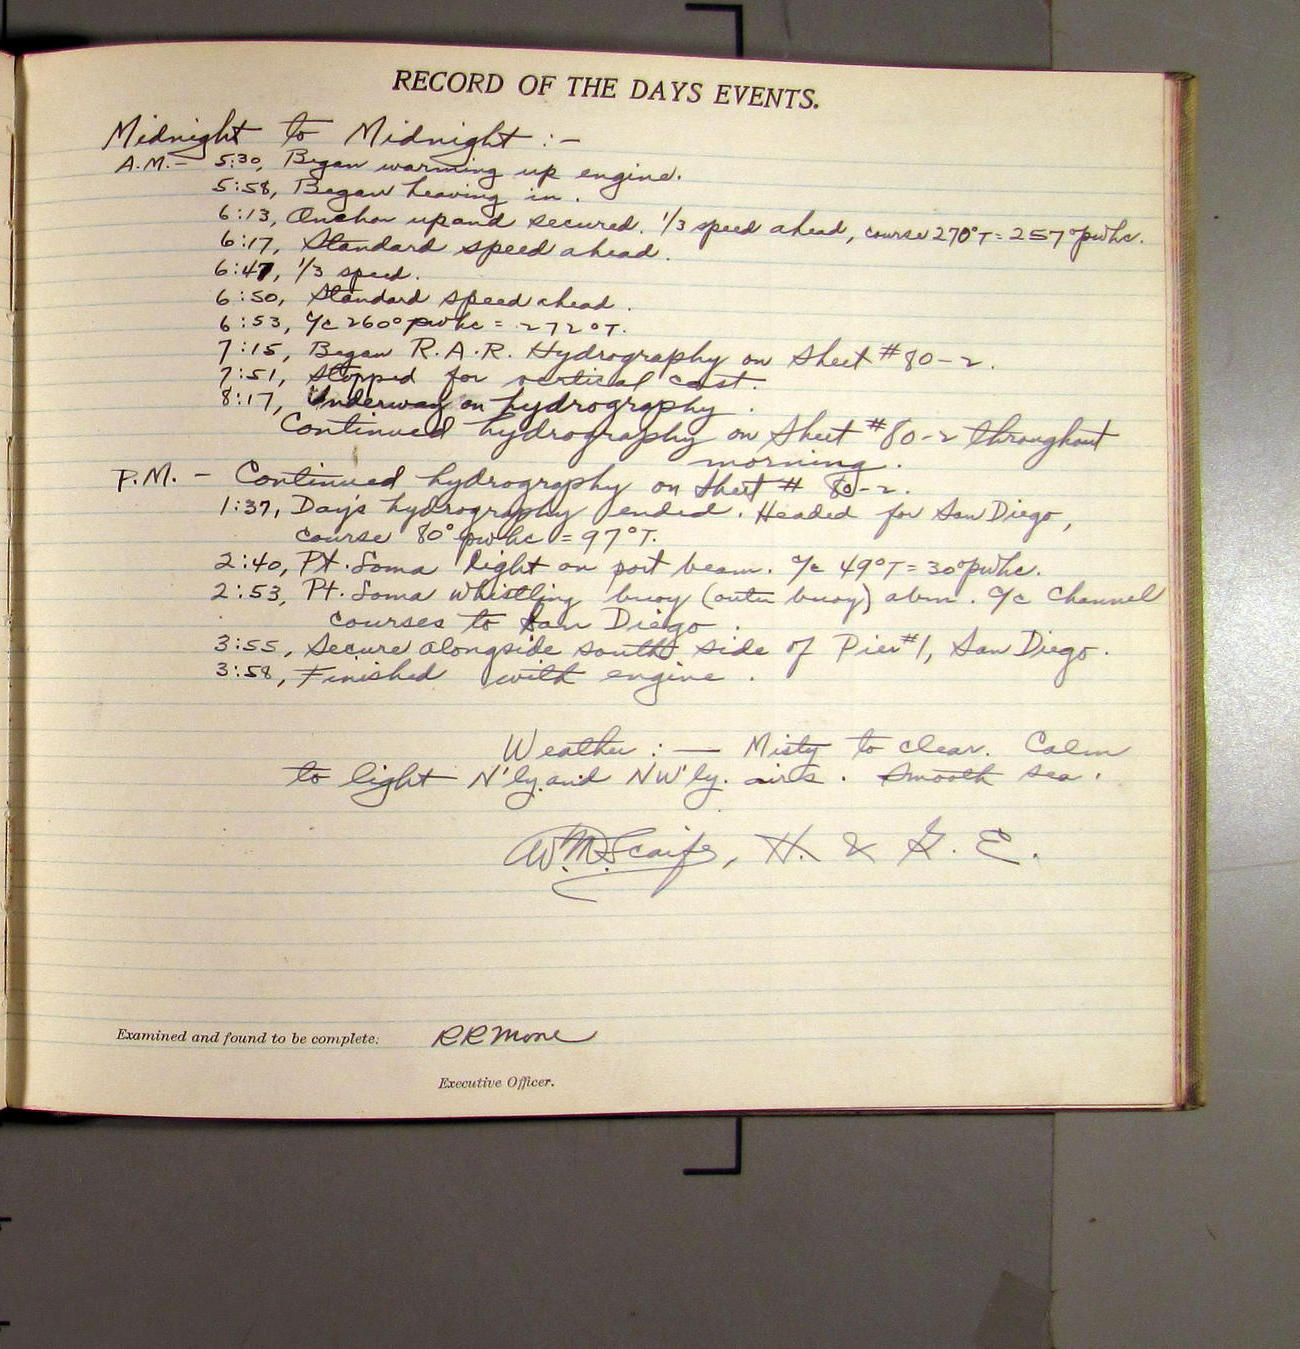 RECORD OF THE DAYS EVENTS.
Midnight to Midnight :-
A.M.- 5:30, Began warming up engine.
5:58, Began heaving in.
6:13, Anchor up and secured. 1/3 speed ahead, course 270°T = 257°pwhc.
6:17, Standard speed ahead.
6:47, 1/3 speed.
6:50, Standard speed ahead.
6:53, c/c 260° pwhc = 272°T.
7:15, Began R.A.R. Hydrography on Sheet #80-2.
7:51, Stopped for vertical cast.
8:17, Underway on hydrography.
Continued hydrography on Sheet #80-2 throughout
morning.
P.M. - Continued hydrography on Sheet # 80-2.
1:37, Day's hydrography ended. Headed for San Diego,
course 80° pwhc = 97°T.
2:40, Pt. Loma light on port beam. c/c 49°T = 30°pwhc.
2:53, Pt. Loma whistling buoy (outer buoy) abm. c/c Channel
courses to San Diego.
3:55, Secure alongside south side of Pier #1, San Diego.
3:58, Finished with engine.
Weather :- Misty to clear. Calm
to light N'ly and NW'ly. airs. Smooth sea.
W.M. Scaife, H. & G. E.
Examined and found to be complete:
Executive Officer.